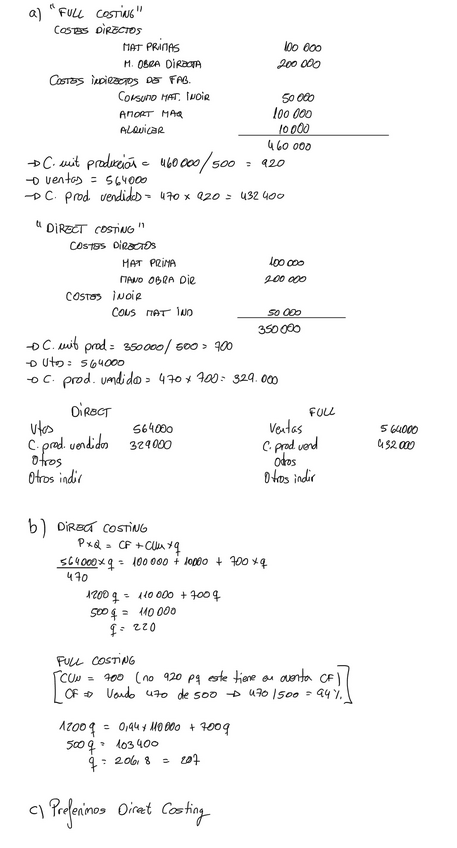 a) "FULL COSTING"
COSTES DIRECTOS
MAT PRIMAS 100 000
M. OBRA DIRECTA 200 000
COSTES INDIRECTOS DE FAB.
CONSUMO MAT. INDIR 50 000
AMORT MAQ 100 000
ALQUILER 10 000
460 000
→ C. unit producción = 460 000/500 = 920
→ ventas = 564000
→ C. prod. vendidos = 470 x 920 = 432 400
"DIRECT COSTING"
COSTES DIRECTOS
MAT PRIMA 100 000
MANO OBRA DIR 200 000
COSTES INDIR
CONS MAT IND 50 000
350 000
→ C. unit prod = 350 000/500 = 700
→ Vtas = 564000
→ C. prod. vendidos = 470 x 700 = 329.000
DIRECT FULL
Vtas 564000 Ventas 564000
C. prod. vendidos 329000 C. prod vend 432000
Otros Otros
Otros indir Otros indir
b) DIRECT COSTING
P x Q = CF + CUu x q
564000 x q = 100 000 + 10000 + 700 x q
470
1200 q = 110 000 + 700 q
500 q = 110 000
q = 220
FULL COSTING
[CUu = 700 (no 920 pq este tiene en cuenta CF)
CF ⇒ Vendo 470 de 500 → 470/500 = 94%]
1200 q = 0,94 x 110000 + 700q
500 q = 103 400
q = 206,8 = 207
c) Preferimos Direct Costing